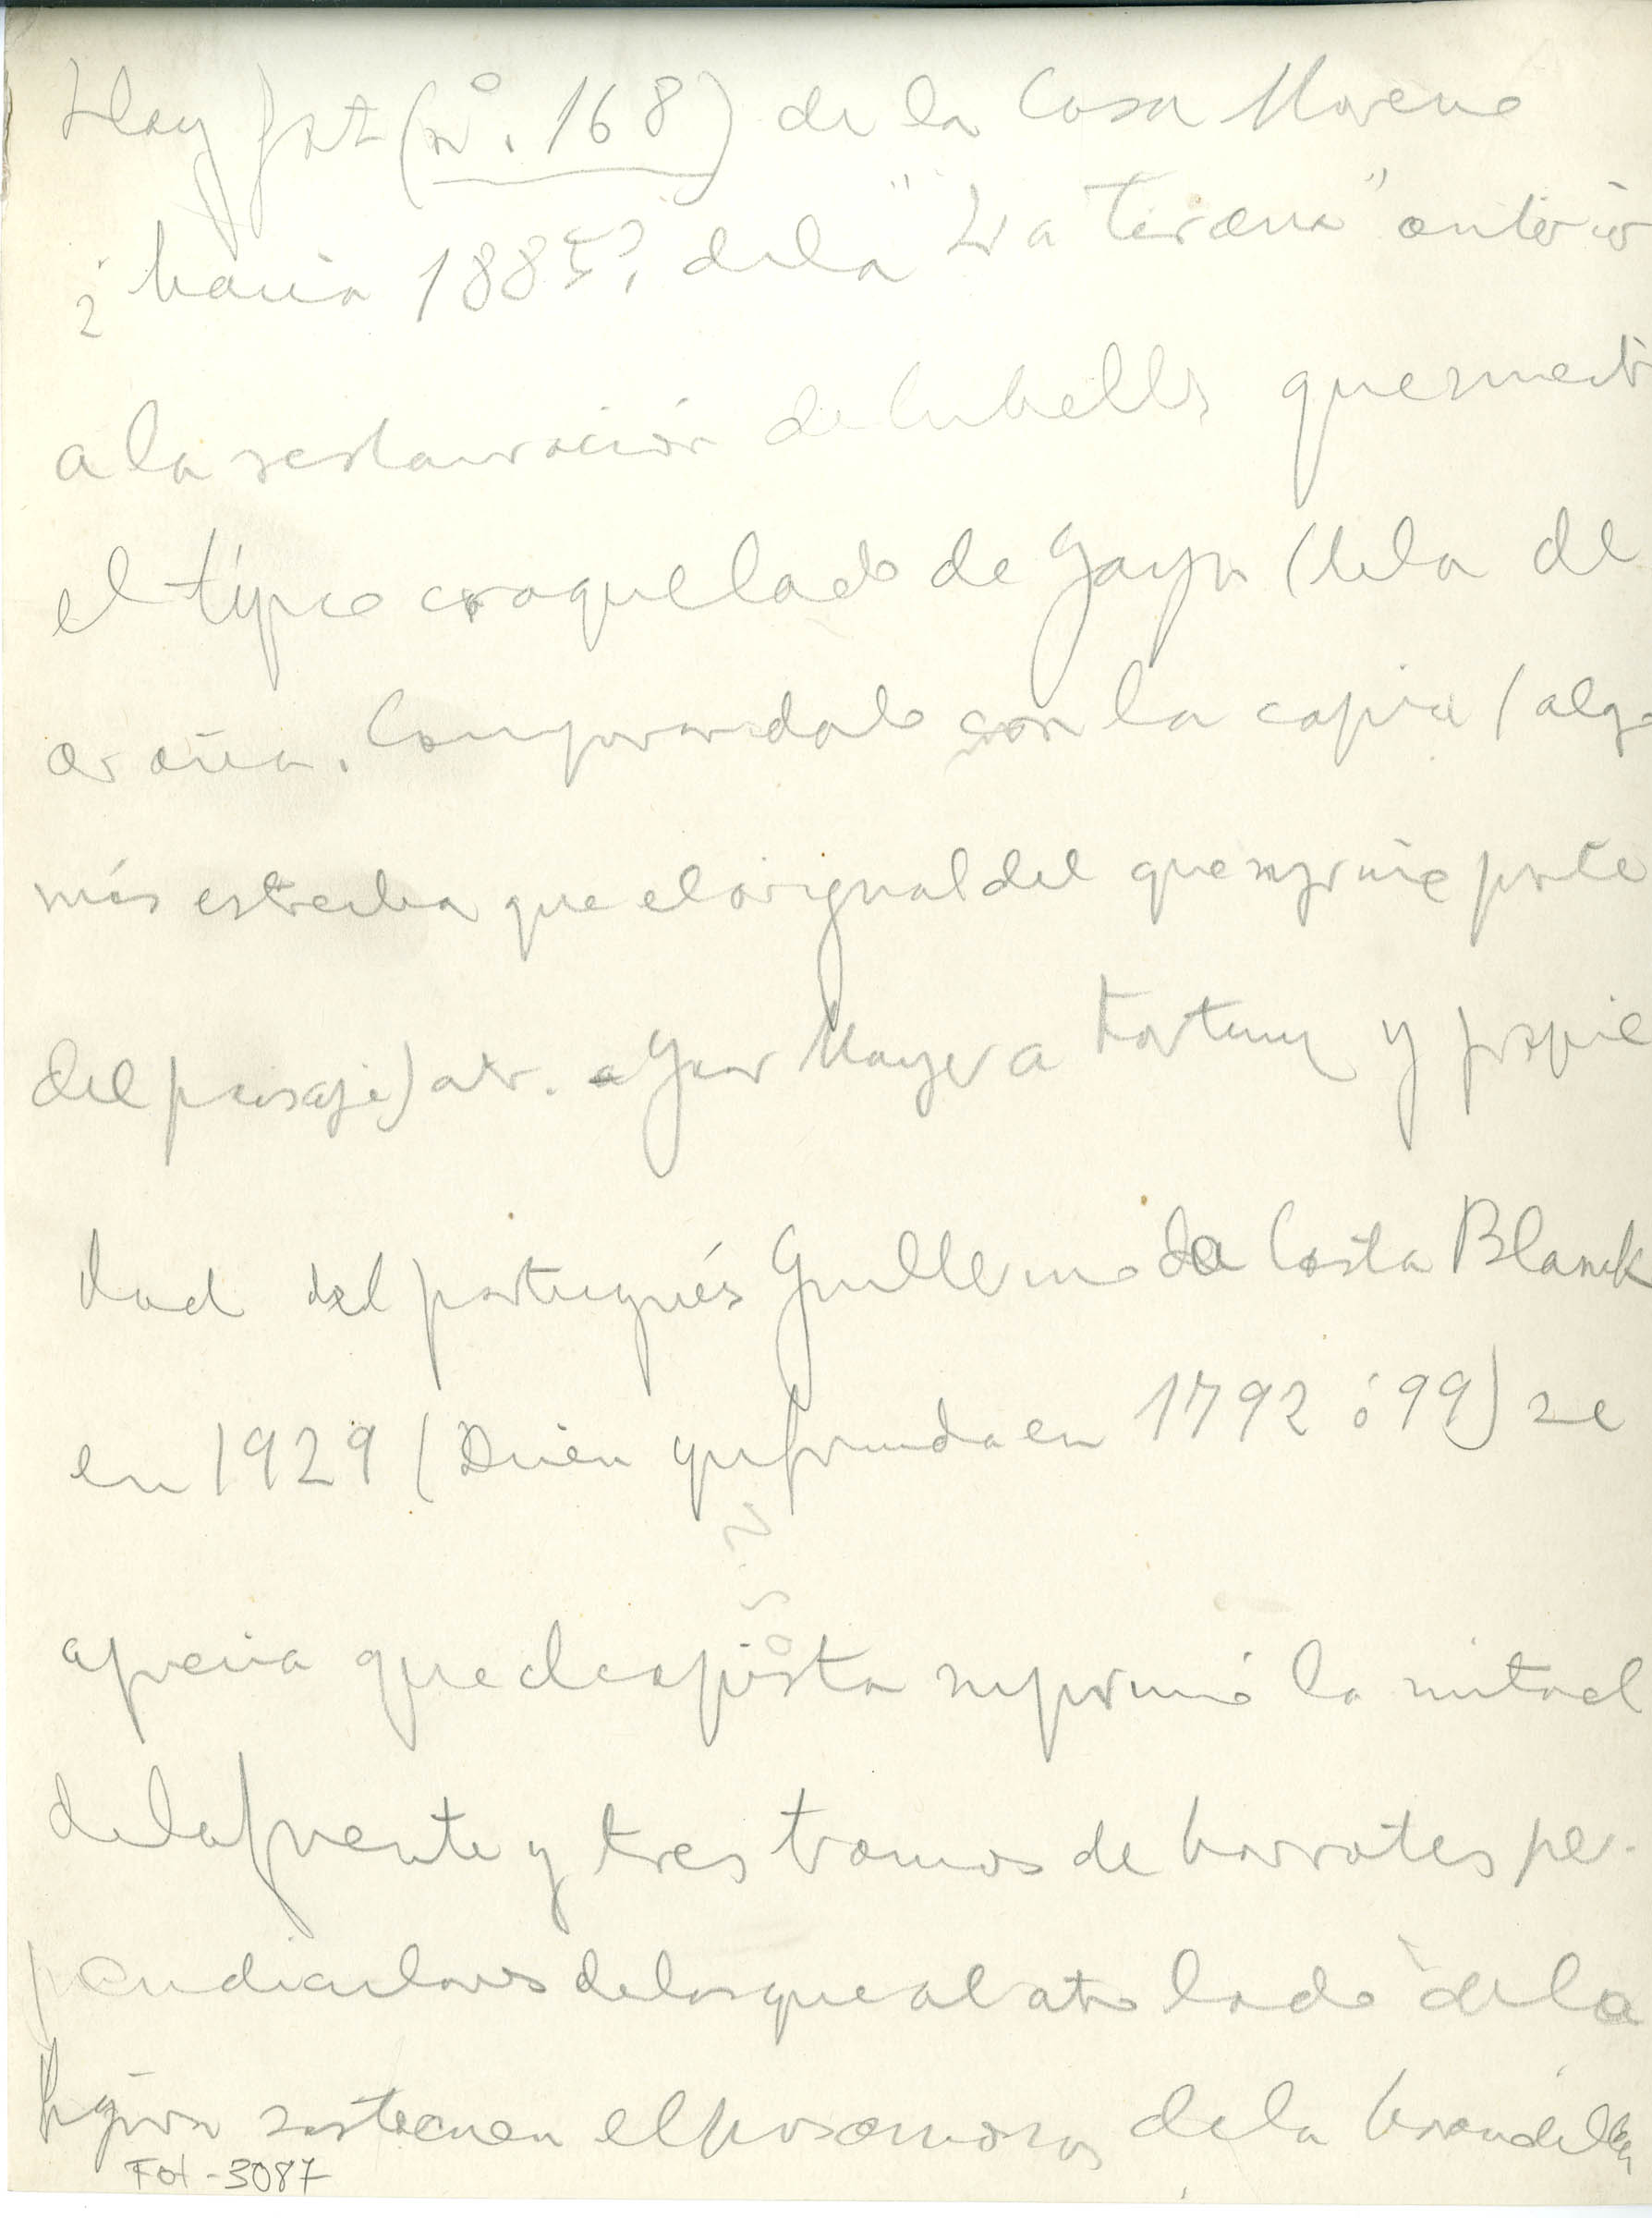 Hay fot (nº. 168) de la Casa Moreno
¿hacia 1885? de la "La Tirana" anterior
a la restauración de Cubells que muest
el típico craquelado de Goya (tela de
araña. Comparándolo con la copia (algo
más estrecha que el original del que suprime parte
del paisaje) atr. a por Mayer a Fortuny y propie
dad del portugués Guillermo da Costa Blanck
en 1929 (Quien que firmada en 1792 ó 99) se
aprecia que el copista suprimió la mitad
de la fuente y tres tramos de barrotes per-
pendiculares de los que al otro lado de la
figura sostienen el pasamanos de la barandilla
Fot-3087